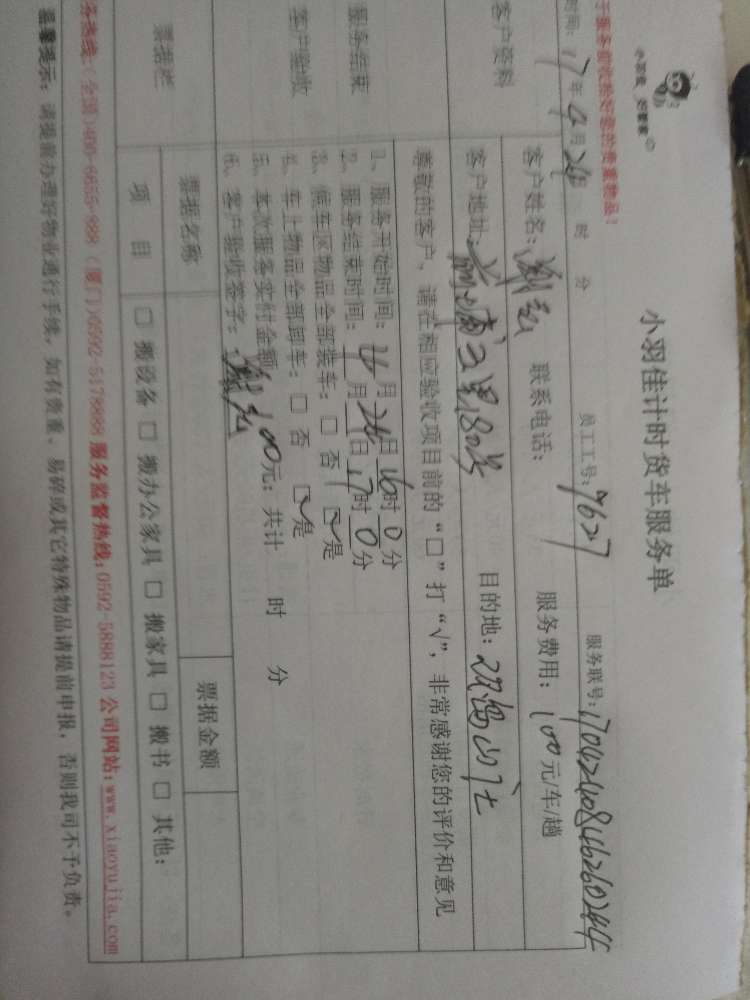 小羽佳 好管家
小羽佳计时货车服务单
于服务前收捡好您的贵重物品！
时间：17年4月24日 时 分 员工工号：7627 服务联号：1704240846260244
客户资料
客户姓名： 联系电话： 服务费用：100元/车/趟
客户地址： 目的地：
尊敬的客户，请在相应验收项目前的“□”打“√”，非常感谢您的评价和意见
服务结束
客户验收
1、服务开始时间：4月24日16时0分
2、服务结束时间：月24日17时0分
3、候车区物品全部装车：□ 否 ☑ 是
4、车上物品全部卸车：□ 否 ☑ 是
5、本次服务实付金额100元；共计 时 分
6、客户验收签字：
票据栏
票据名称 票据金额
项目 □ 搬设备 □ 搬办公家具 □ 搬家具 □ 搬书 □ 其他：
务热线：（全国）400-6655-988（厦门）0592-5178889 服务监督热线：0592-5888123 公司网站：www.xiaoyujia.com
温馨提示：请提前办理好物业通行手续，如有贵重、易碎或其它特殊物品请提前申报，否则我司不予负责。